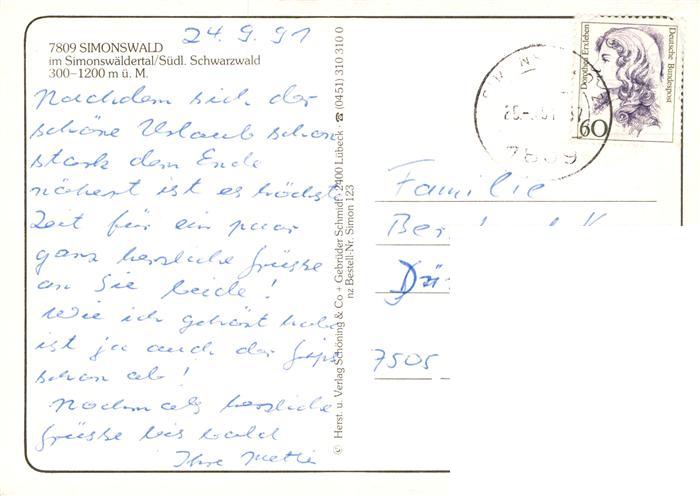 24.9.91
7809 SIMONSWALD
im Simonswäldertal/Südl. Schwarzwald
300–1200 m ü. M.
Nachdem sich der
schöne Urlaub schon
stark dem Ende
nähert ist es höchste
Zeit für ein paar
ganz herzliche Grüsse
an Sie beide!
Wie ich gehört habe
ist ja auch der Gips
schon ab!
Nochmals herzliche
Grüsse bis bald
Ihre
© Herst. u. Verlag Schöning & Co + Gebrüder Schmidt · 2400 Lübeck · ☎ (0451) 310 310 0
nz Bestell-Nr. Simon 123
Dorothea Erxleben
Deutsche Bundespost
60
7809
Familie
7505